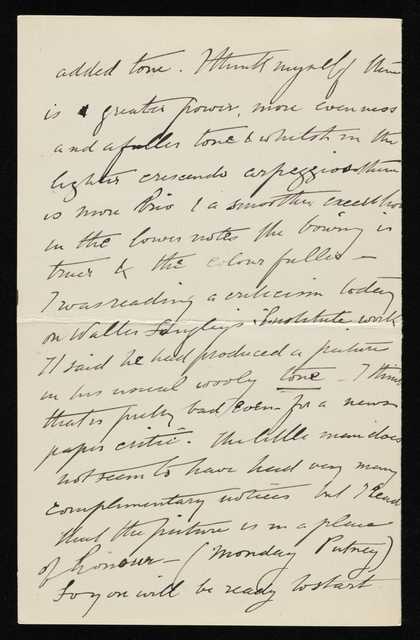 added tone. I think myself there
is greater power, more evenness
and a fuller tone & whilst in the
lighter crescendo arpeggios there
is more Brio & a smoother
in the lower notes the bowing is
truer & the colour fuller –
I was reading a criticism today
on Walter Langley's Institute work
It said he had produced a picture
in his usual wooly tone – I think
that is pretty bad even for a news
paper critic. The little man does
not seem to have had very many
complimentary notices but I read
that the picture is in a place
of honour – (Monday Putney)
So you will be ready to start